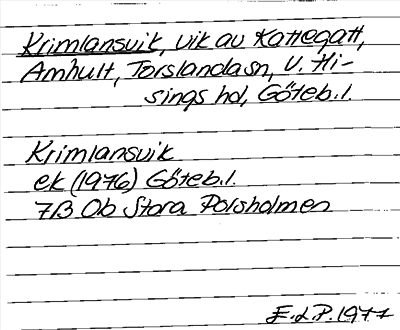 Krimlansvik, vik av Kattegatt,
Amhult, Torslanda sn, V. Hi-
sings hd, Göteb. l.
Krimlansvik
ek (1976) Göteb. l.
7B 0b Stora Polsholmen
E.L.P. 1977